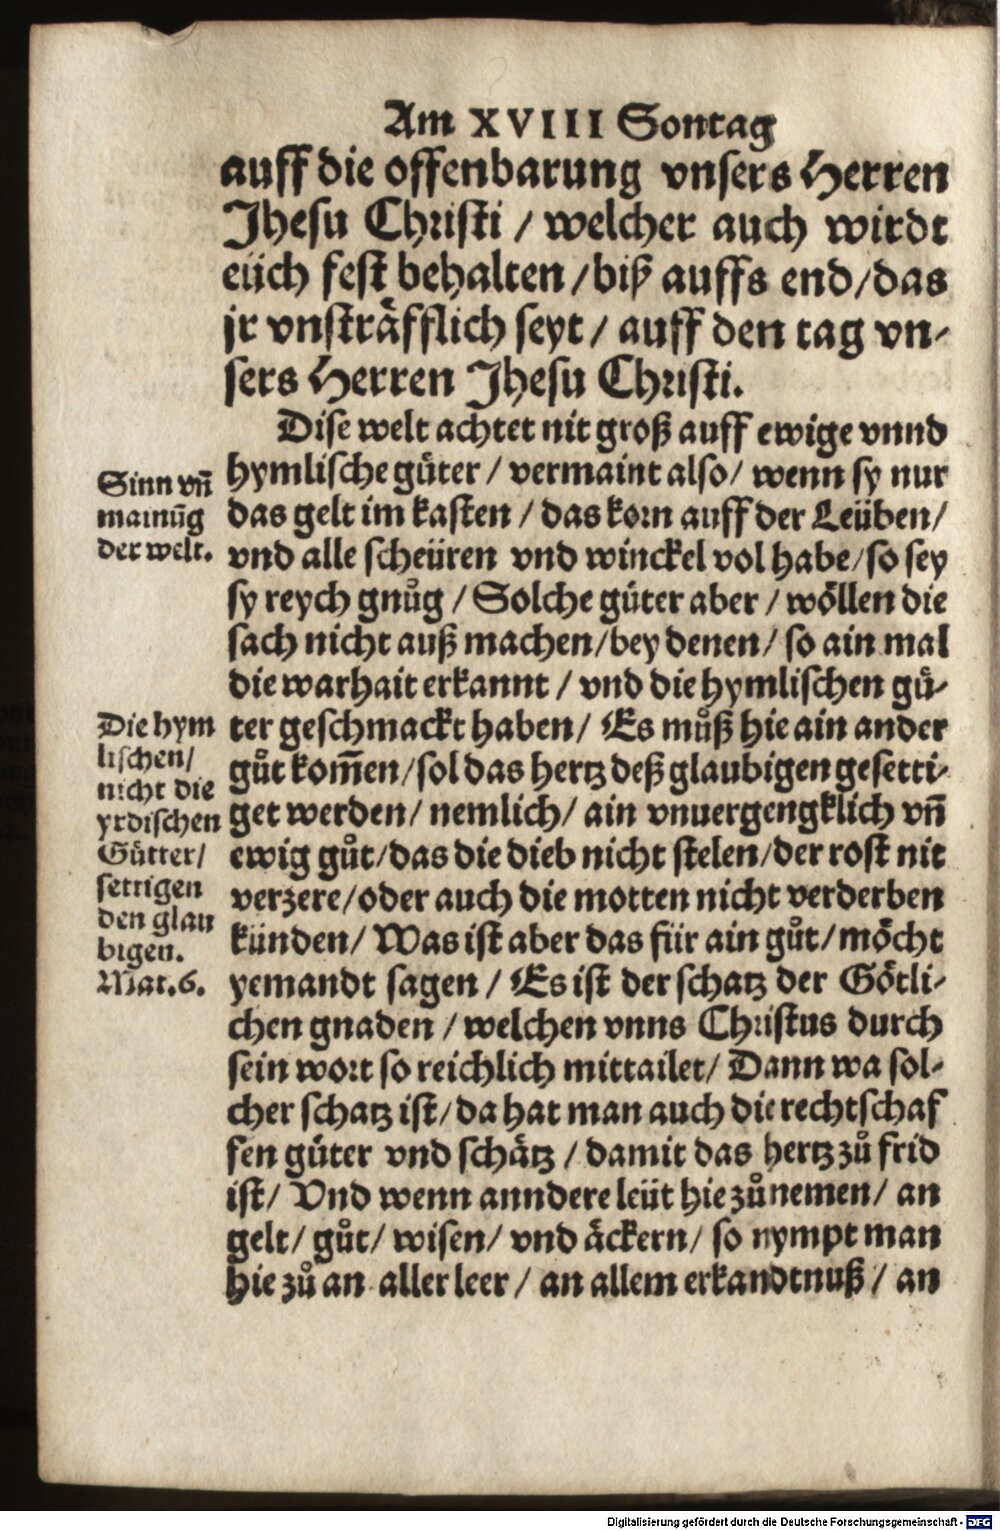 Am XVIII Sontag
auff die offenbarung vnsers Herren
Jhesu Christi / welcher auch wirdt
eüch fest behalten / biß auffs end / das
jr vnsträfflich seyt / auff den tag vn-
sers Herren Jhesu Christi.
Dise welt achtet nit groß auff ewige vnnd
hymlische gůter / vermaint also / wenn sy nur
das gelt im kasten / das korn auff der Leüben /
vnd alle scheüren vnd winckel vol habe / so sey
sy reych gnůg / Solche güter aber / wöllen die
sach nicht auß machen / bey denen / so ain mal
die warhait erkannt / vnd die hymlischen gů-
ter geschmackt haben / Es můß hie ain ander
gůt kom̄en / sol das hertz deß glaubigen gesetti-
get werden / nemlich / ain vnuergengklich vn̄
ewig gůt / das die dieb nicht stelen / der rost nit
verzere / oder auch die motten nicht verderben
künden / Was ist aber das für ain gůt / möcht
yemandt sagen / Es ist der schatz der Götli-
chen gnaden / welchen vnns Christus durch
sein wort so reichlich mittailet / Dann wa sol-
cher schatz ist / da hat man auch die rechtschaf
fen güter vnd schätz / damit das hertz zů frid
ist / Vnd wenn anndere leüt hie zůnemen / an
gelt / gůt / wisen / vnd äckern / so nympt man
hie zů an aller leer / an allem erkandtnuß / an
Sinn vn̄
mainūg
der welt.
Die hym
lischen /
nicht die
yrdischen
Götter /
settigen
den glau
bigen.
Mat. 6.
Digitalisierung gefördert durch die Deutsche Forschungsgemeinschaft - DFG